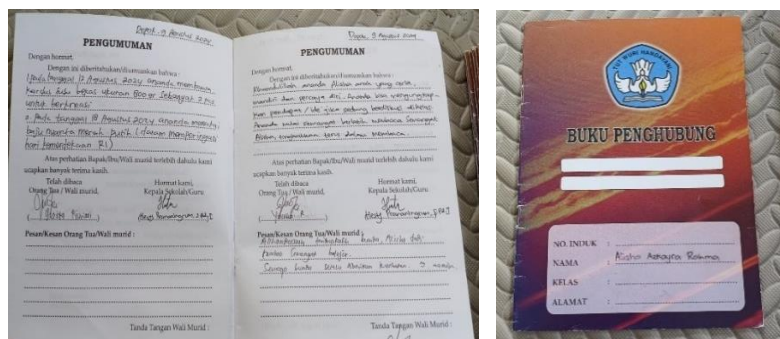 Depok, 9 Agustus 2024
PENGUMUMAN
Dengan hormat,
Dengan ini diberitahukan/diumumkan bahwa :
1. pada tanggal 12 Agustus 2024 ananda membawa
kardus susu bekas ukuran 800 gr sebanyak 2 pcs
untuk berkreasi
2. Pada tanggal 18 Agustus 2024 ananda memakai
baju nuansa merah putih (dalam memperingati
hari kemerdekaan RI)
Atas perhatian Bapak/Ibu/Wali murid terlebih dahulu kami
ucapkan banyak terima kasih.
Telah dibaca
Orang Tua / Wali murid,
Hormat kami,
Kepala Sekolah/Guru
Pesan/Kesan Orang Tua/Wali murid :
Tanda Tangan Wali Murid :
Depok, 9 Agustus 2024
PENGUMUMAN
Dengan hormat,
Dengan ini diberitahukan/diumumkan bahwa :
Alhamdulillah ananda Alisha anak yang ceria,
mandiri dan percaya diri. Ananda bisa mengungkap-
kan pendapan / ide
Ananda semangat berlatih membaca. Semangat
terus dalam membaca.
Atas perhatian Bapak/Ibu/Wali murid terlebih dahulu kami
ucapkan banyak terima kasih.
Telah dibaca
Orang Tua / Wali murid,
Hormat kami,
Kepala Sekolah/Guru
Pesan/Kesan Orang Tua/Wali murid :
bunda, Alisha
Semangat belajar.
Semoga bunda selalu
Tanda Tangan Wali Murid :
TUT WURI HANDAYANI
BUKU PENGHUBUNG
NO. INDUK :
NAMA : Alisha Azzayra Rahma
KELAS :
ALAMAT :